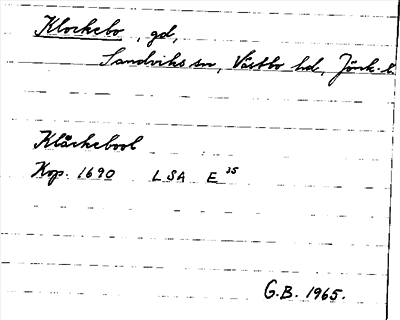 Klockebo, gd,
Sandviks sn, Västbo hd, Jönk. l.
Klåckebool
Kop. 1690 LSA E 35
G.B. 1965.